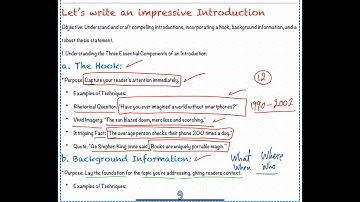 Let's write an impressive Introduction
Objective: Understand and craft compelling introductions, incorporating a hook, background information, and a
robust thesis statement.
I. Understanding the Three Essential Components of an Introduction:
a. The Hook:
*Purpose: Capture your reader's attention immediately.
• Examples of Techniques:
• Rhetorical Question: "Have you ever imagined a world without smartphones?"
• Vivid Imagery: "The sun blazed down, merciless and scorching."
• Intriguing Fact: "The average person checks their phone 200 times a day."
• Quote: "As Stephen King once said, 'Books are uniquely portable magic.'"
12
1990-2002
b. Background Information:
What Where
When Who
*Purpose: Lay the foundation for the topic you're addressing, giving readers context.
• Examples of Techniques: